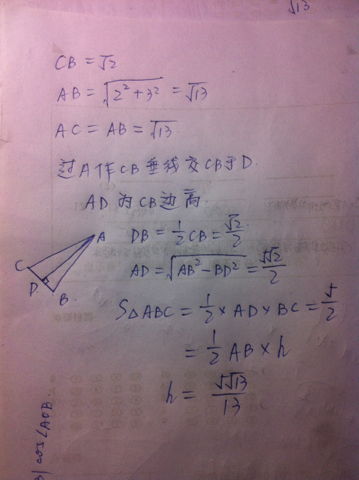 √13
CB = √2
AB = √2²+3² = √13
AC = AB = √13
过A作CB垂线交CB于D.
AD为CB边高.
DB = 1/2 CB = √2/2
AD = √AB²-BD² = 5√2/2
S△ABC = 1/2 × AD × BC = 5/2
= 1/2 AB × h
h = 5√13/13
A
C
D
B
cos∠AOB